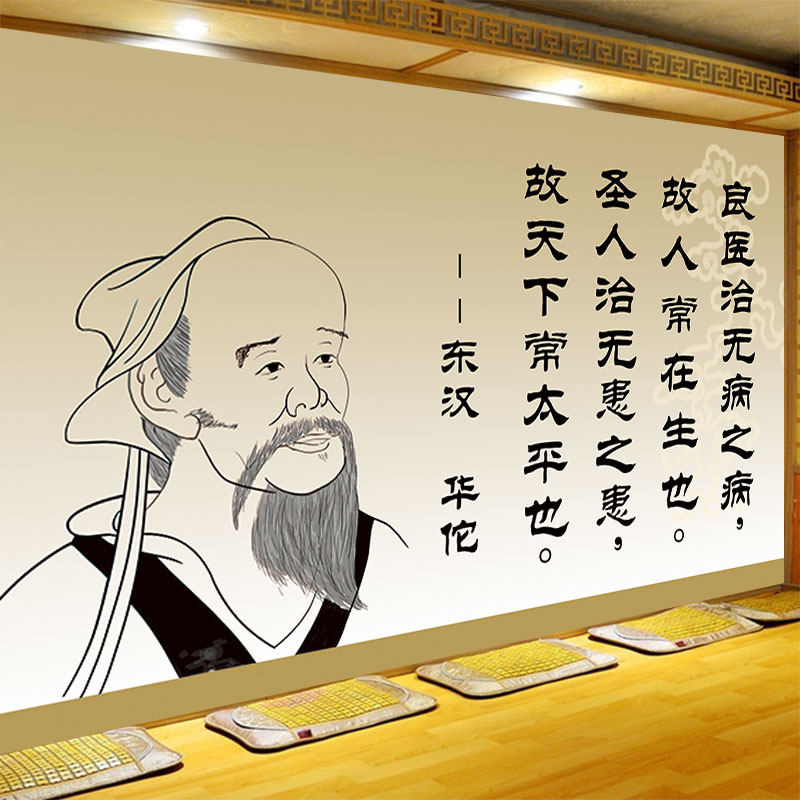 良医治无病之病，
故人常在生也。
圣人治无患之患，
故天下常太平也。
——东汉 华佗